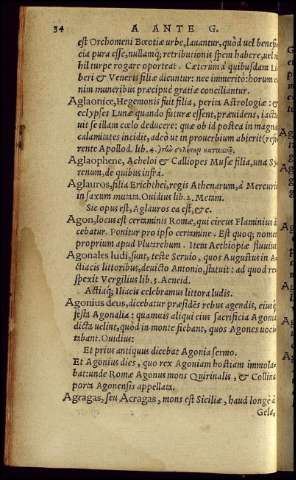 34 A ANTE G.
est Orchomeni Bœotiæ urbe, lauantur, quòd uel benefi-
cia pura esse, nullamq́; retributionis spem habere, uel ni-
hil turpe rogare oportet. Cæterùm à quibusdam Li-
beri & Veneris filiæ dicuntur: nec immeritò: horum e-
nim muneribus præcipuè gratiæ conciliantur.
Aglaonice, Hegemonis fuit filia, perita Astrologiæ: &
eclypses Lunæ quando futuræ essent, præuidens, iacta-
uit se illam cœlo deducere: quæ ob id postea in magnas
calamitates incidit, adeò ut in prouerbium abierit (refe-
rente Apollod. lib. 4.
Aglaophene, Acheloi & Calliopes Musæ filia, una Sy-
renum, de quibus infra.
Aglauros, filia Erichthei, regis Athenarum, à Mercurio
in saxum mutata. Ouidius lib. 2. Metam.
Sic opus est, Aglauros ea est, &c.
Agon, locus est certaminis Romæ, qui circus Flaminius di-
cebatur. Ponitur pro ipso certamine. Est quoq; nomen
proprium apud Plutarchum. Item Aethiopiæ fluuius.
Agonales ludi, sunt, teste Seruio, quos Augustus in A-
ctiacis littoribus, deuicto Antonio, statuit: ad quod re-
spexit Vergilius lib. 3. Aeneid.
Actiaq́; Iliacis celebramus littora ludis.
Agonius deus, dicebatur præsidēs rebus agendis, eiusq́;
festa Agonalia: quamuis aliqui eius sacrificia Agonia
dicta uelint, quòd in monte fiebant, quos Agones uoci-
tabant. Ouidius:
Et prius antiquus dicebat Agonia sermo.
Et Agonius dies, quo rex Agoniam hostiam immola-
bat: unde Romæ Agonus mons Quirinalis, & Collina
porta Agonensis appellata.
Agragas, seu Acragas, mons est Siciliæ, haud longè à
Gela,